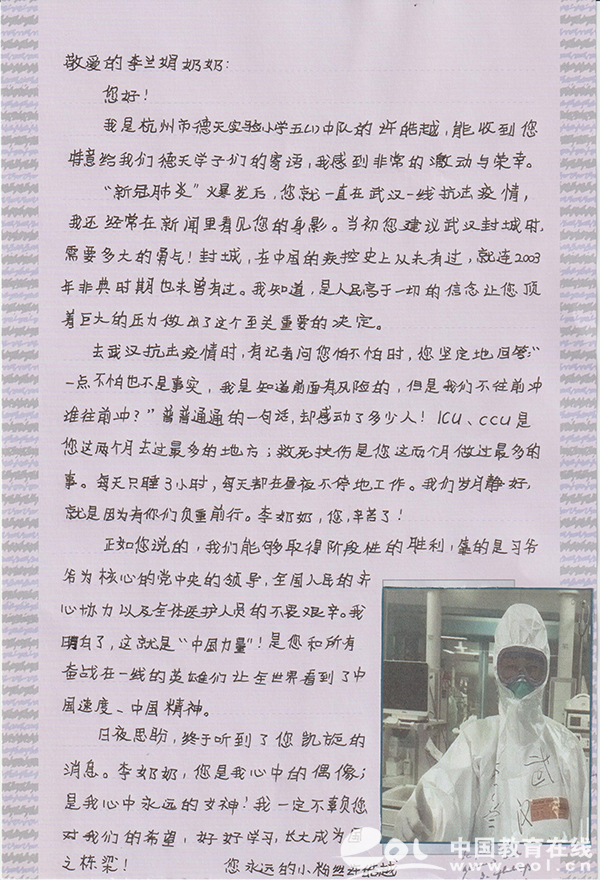 敬爱的李兰娟奶奶：
您好！
我是杭州市德天实验小学五(1)中队的许皓越，能收到您
特意给我们德天学子们的寄语，我感到非常的激动与荣幸。
“新冠肺炎”爆发后，您就一直在武汉一线抗击疫情，
我还经常在新闻里看见您的身影。当初您建议武汉封城时，
需要多大的勇气！封城，在中国的疾控史上从未有过，就连2003
年非典时期也未曾有过。我知道，是人民高于一切的信念让您顶
着巨大的压力做出了这个至关重要的决定。
去武汉抗击疫情时，有记者问您怕不怕时，您坚定地回答：“
一点不怕也不是事实，我是知道前面有风险的，但是我们不往前冲
谁往前冲？”普普通通的一句话，却感动了多少人！ICU、CCU是
您这两个月去过最多的地方；救死扶伤是您这两个月做过最多的
事。每天只睡3小时，每天都在昼夜不停地工作。我们岁月静好，
就是因为有你们负重前行。李奶奶，您，辛苦了！
正如您说的，我们能够取得阶段性的胜利，靠的是习爷
爷为核心的党中央的领导，全国人民的齐
心协力以及全体医护人员的不畏艰辛。我
明白了，这就是“中国力量”！是您和所有
奋战在一线的英雄们让全世界看到了中
国速度、中国精神。
日夜思盼，终于听到了您凯旋的
消息。李奶奶，您是我心中的偶像；
是我心中永远的女神！我一定不负您
对我们的希望，好好学习，长大成为国
之栋梁！ 您永远的小粉丝许皓越
武汉
中国教育在线
eol www.eol.cn